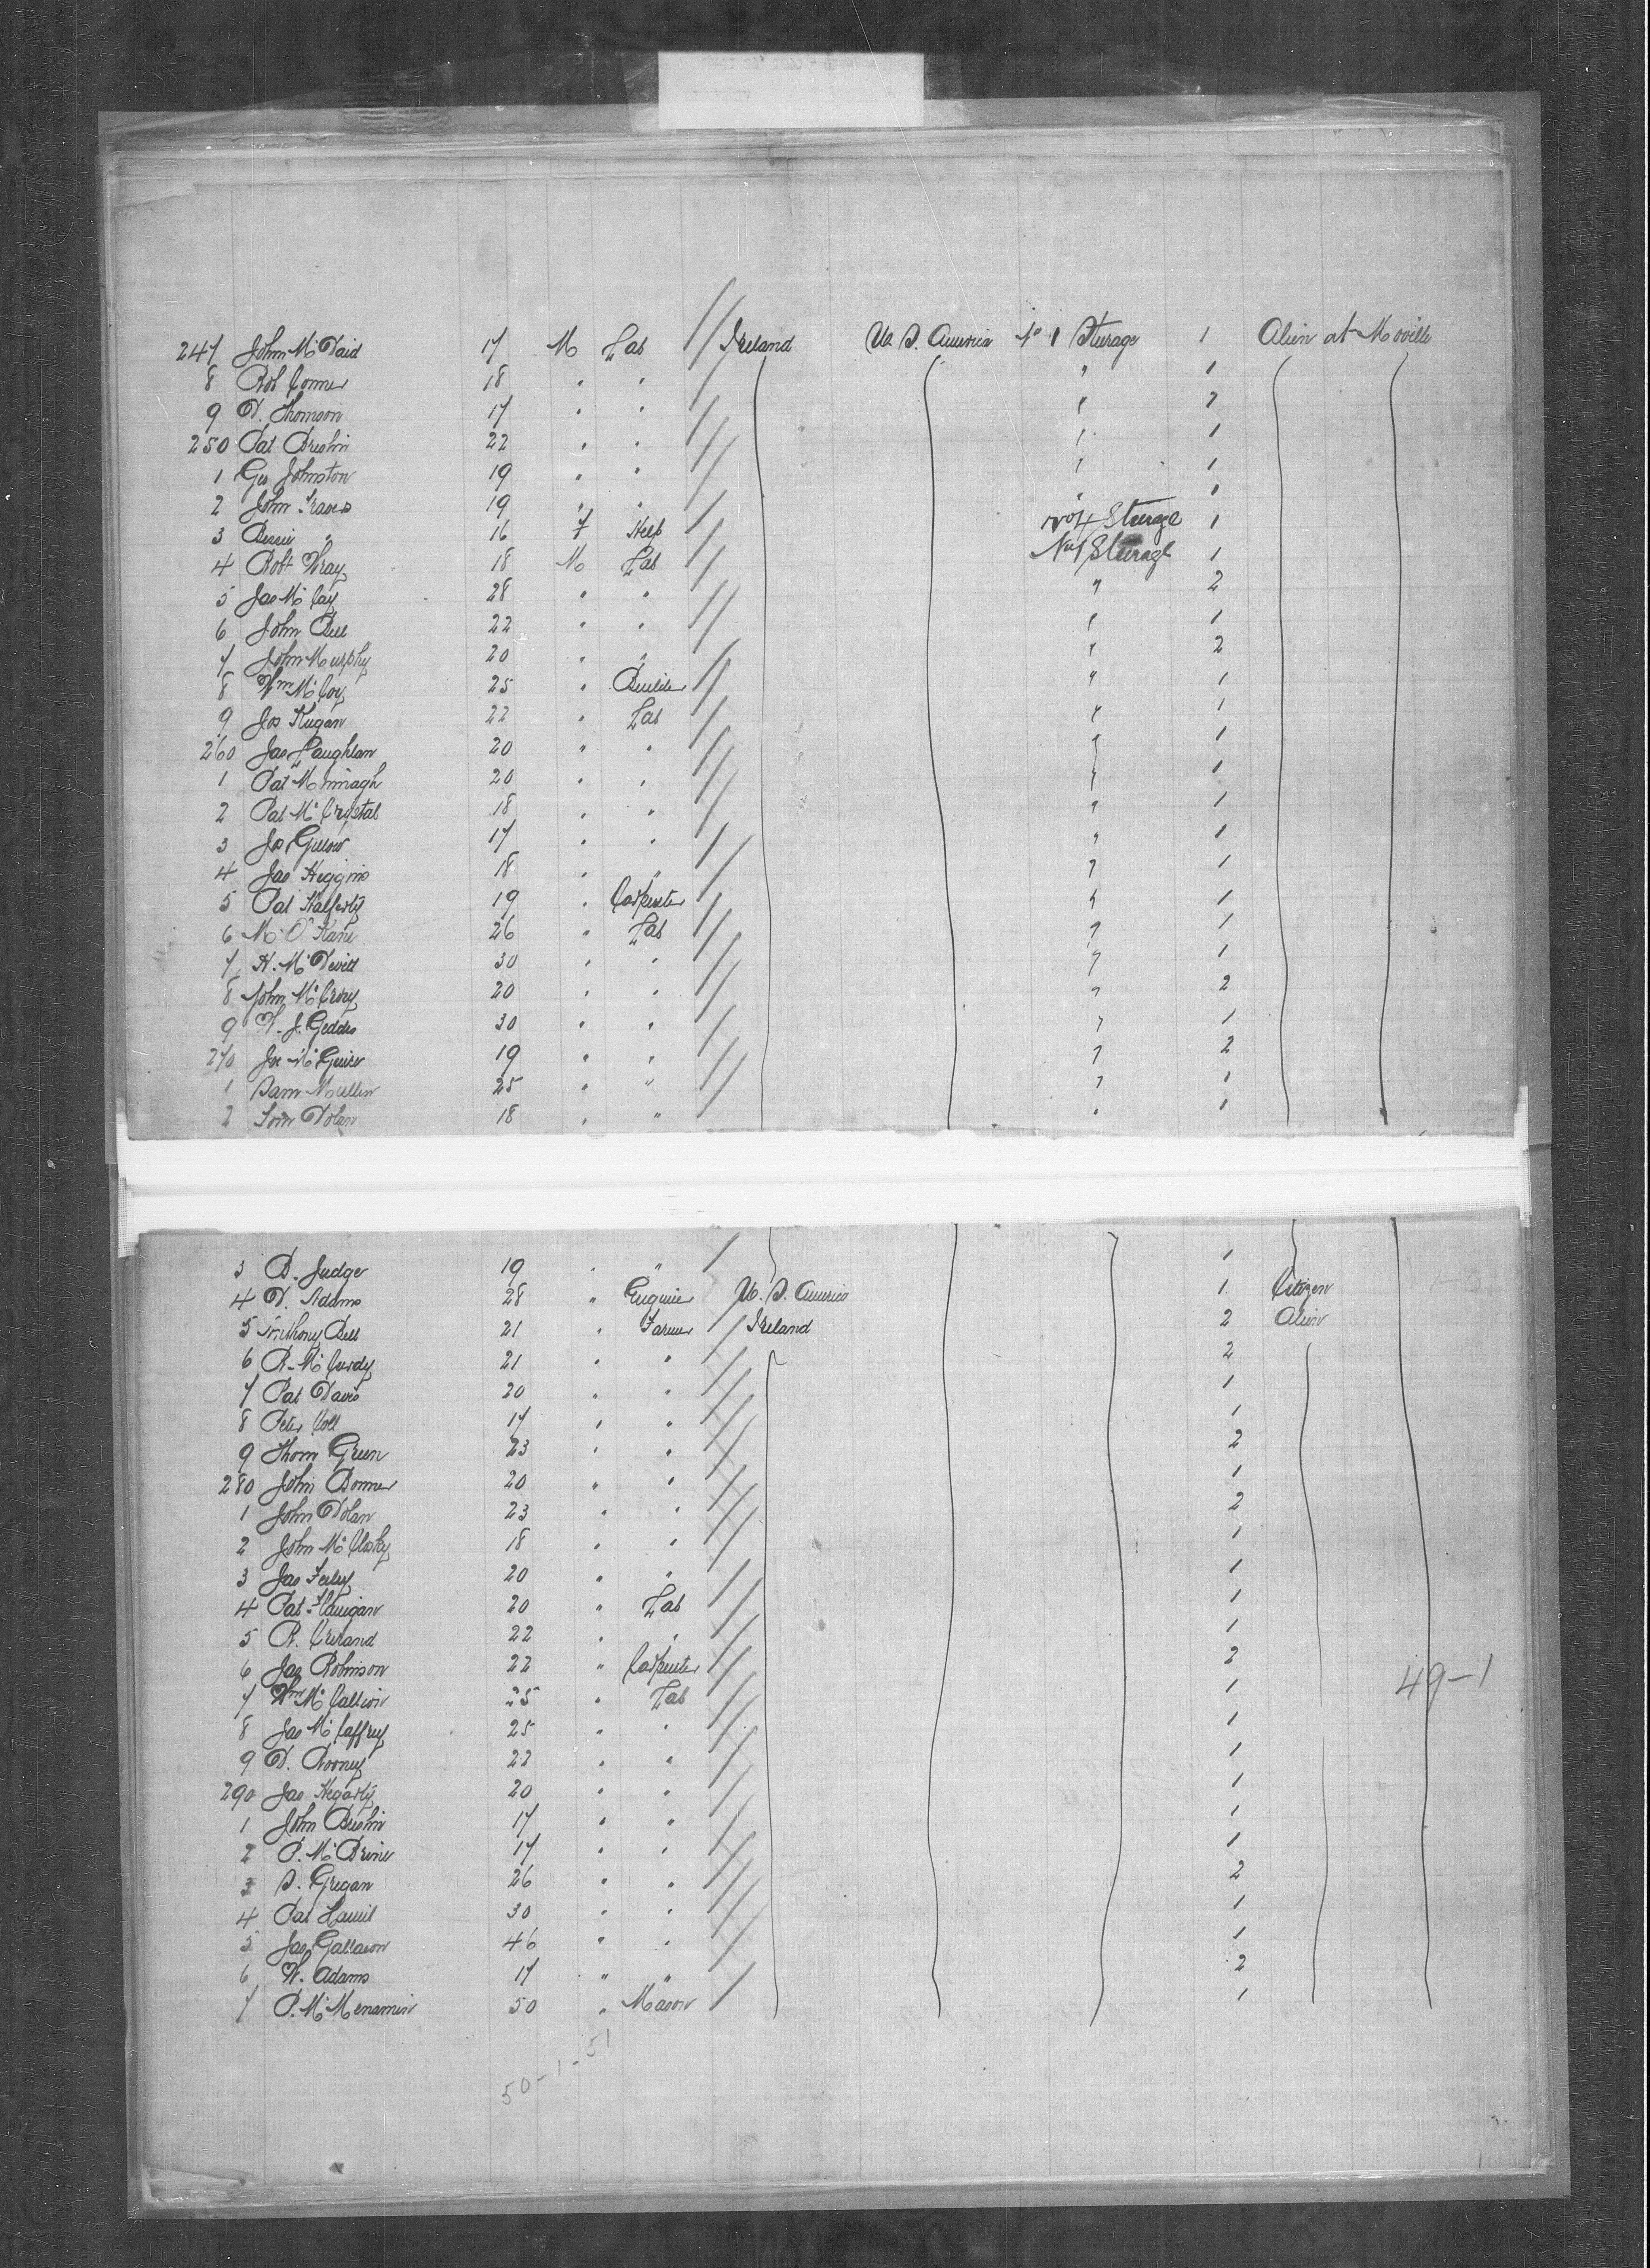 247 John McDaid 17 M Lab Ireland U.S. America No 1 Steerage 1 Alien at Moville
8 Rob Conner 18 " " " 1
9 D. Thomson 17 " " " 2
250 Pat Breslin 22 " " " 1
1 Geo Johnston 19 " " " 1
2 John Travers 19 " " " 1
3 Bessie " 16 F Help No 4 Steerage 1
4 Robt Wray 18 M Lab No 1 Steerage 1
5 Jas McCay 28 " " " 2
6 John Bell 22 " " " 1
7 John Murphy 20 " " " 2
8 Wm McCoy 25 " Builder " 1
9 Jos Kugan 22 " Lab " 1
260 Jas Laughlan 20 " " " 1
1 Pat McMinagh 20 " " " 1
2 Pat McCrystal 18 " " " 1
3 17 " " " 1
4 Jas Higgins 18 " " " 1
5 Pat Halferty 19 " Carpenter " 1
6 M. O'Kane 26 " Lab " 1
7 H. McDevitt 30 " " " 1
8 John McCrory 20 " " " 2
9 W. J. Geddes 30 " " " 1
270 McGuire 19 " " " 2
1 Sam Mullen 25 " " " 1
2 Tom Dolan 18 " " " 1
3 B. Judge 19 " " 1
4 D. Adams 28 " Engineer U.S. America 1 Citizen
5 Anthony Bell 21 " Farmer Ireland 2 Alien
6 R. McCurdy 21 " " 2
7 Pat Davis 20 " " 1
8 Peter Coll 17 " " 1
9 Thom Green 23 " " 2
280 John Bonner 20 " " 1
1 John Dolan 23 " " 2
2 John McClosky 18 " " 1
3 Jas Feeley 20 " " 1
4 Pat Flanigan 20 " Lab 1
5 R. Crerand 22 " " 1
6 Jas Robinson 22 " Carpenter 2
7 Wm McCallion 25 " Lab 1 49-1
8 Jas McCaffrey 25 " " 1
9 D. Rooney 22 " " 1
290 Jas Hegarty 20 " " 1
1 John Breslin 17 " " 1
2 P. McBrine 17 " " 1
3 S. Gregan 26 " " 2
4 Pat Hamil 30 " " 1
5 Jas Gallaeon 46 " " 1
6 W. Adams 17 " " 2
7 P. McMenamin 50 " Mason 1
50-1-51